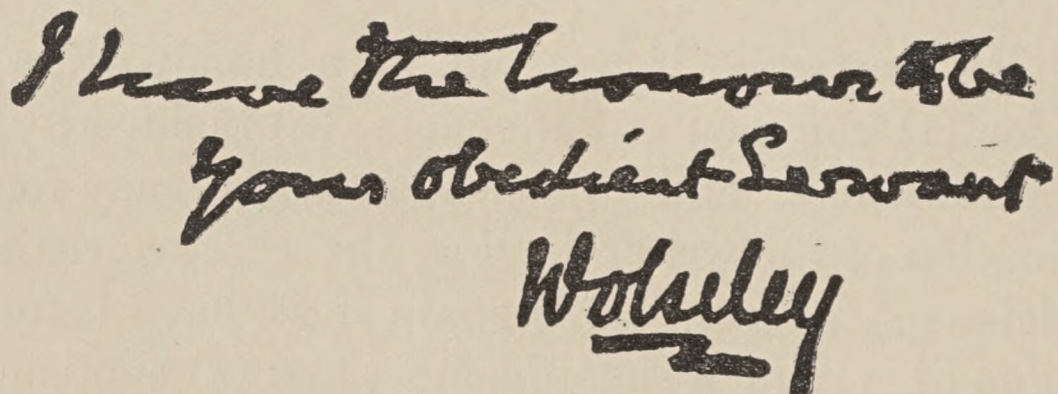 I have the honour to be
your obedient Servant
Wolseley